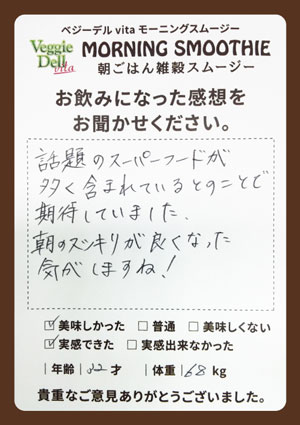 ベジーデル vita モーニングスムージー
Veggie Dell vita
MORNING SMOOTHIE
朝ごはん雑穀スムージー
お飲みになった感想を
お聞かせください。
話題のスーパーフードが
多く含まれているとのことで
期待していました。
朝のスッキリが良くなった
気がしますね!
☑ 美味しかった □ 普通 □ 美味しくない
☑ 実感できた □ 実感出来なかった
| 年齢 | 才 | 体重 | 68 kg
貴重なご意見ありがとうございました。